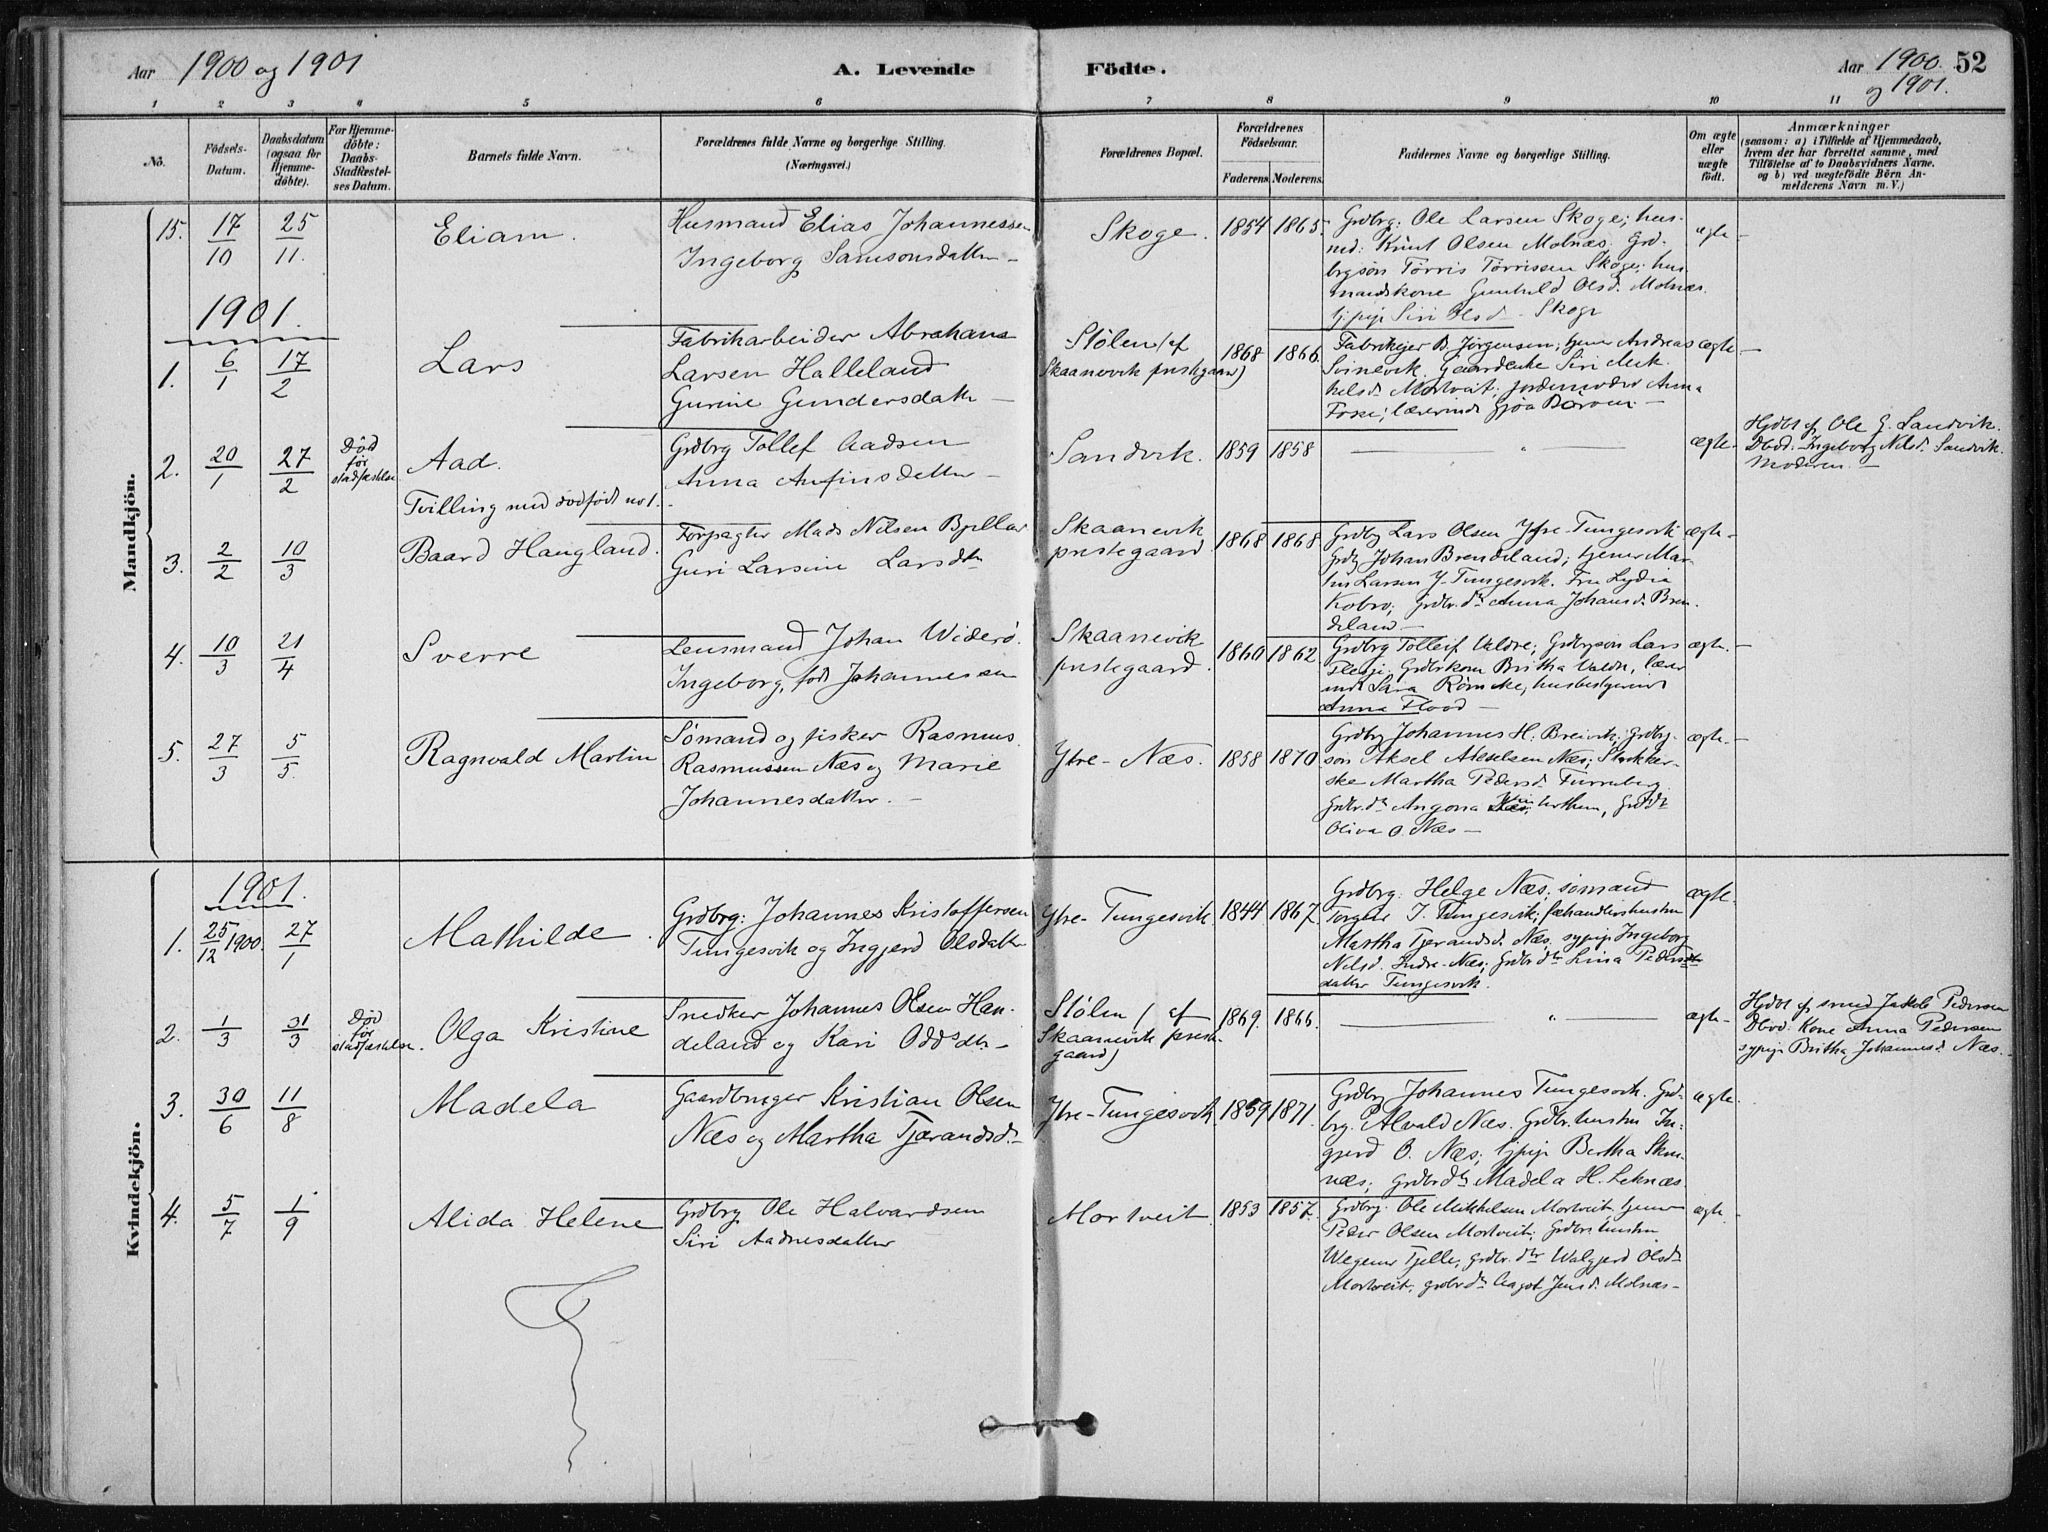 Aar 1900 og 1901
A. Levende Födte.
Aar 1900 og 1901.
52
1 2 3 4 5 6 7 8 9 10 11
No.
Födsels-
Datum.
Daabsdatum
(ogsaa for
Hjemme-
döbte).
For Hjemme-
döbte:
Daabs-
Stadfæstel-
ses Datum.
Barnets fulde Navn.
Forældrenes fulde Navne og borgerlige Stilling.
(Næringsvei.)
Forældrenes Bopæl.
Forældrenes
Födselsaar.
Faderens. Moderens.
Faddernes Navne og borgerlige Stilling.
Om ægte
eller
uægte
födt.
Anmærkninger
(saasom: a) i Tilfælde af Hjemmedaab,
hvem der har forrettet samme, med
Tilföielse af to Daabsvidners Navne.
og b) ved uægtefödte Börn An-
melderens Navn m. V.)
Mandkjön.
15. 17/10 25/11. Eliam.
Husmand Elias Johannessen
Ingeborg Samsonsdatter
Skoge. 1854 1865.
Grdbrg: Ole Larsen Skoge; hus-
md: Knut Olsen Molnæs. Grd-
brgsön Tørris Tørrissen Skoge; hus
mandskone Gunhild Olsd. Molnæs.
tjpige Siri Olsd. Skoge
ægte
1901.
1. 6/1 17/2 Lars
Fabrikarbeider Abraham
Larsen Halleland
Gurine Gundersdatr
Stølen (af
Skaanevik prestegaard)
1868 1866.
Fabrikejer B. Jørgensen; tjener Andreas
Svinevik. Gaardenke Siri Mik
kelsd. Mortveit; jordemoder Anna
Foske; lærerinde Gjøa
ægte
2. 20/1 27/2 Død
før
stadfæstelse
Aad.
Tvilling med dødfødt no 1.
Grdbrg Tollef Aadsen
Anna Anfinsdatter
Sandvik. 1859 1858
ægte
Hjdbt af Ole G. Sandvik.
Dbvd. Ingeborg Nelsd. Sandvik.
Moderen.
3. 2/2 10/3 Baard Haugland.
Forpagter Mads Nilsen
Guri Larsine Larsdtr
Skaanevik
prestegaard
1868 1868
Grdbg Lars Olsen Ytre-Tungesvik
Johan Brendeland; tjener Mar-
tin Larsen Y-Tungesvik. Fru Lydia
Kobro; grdbr.dtr Anna Johansd. Bren.
deland
ægte
4. 10/3 21/4 Sverre
Lensmand Johan Widerö.
Ingeborg, født Johannesen
Skaanevik
prestegaard.
1860 1862
Grdbrg Tolleif Valdre; Grdbrgsön Lars
Grdbrkone Britha Valdre, lærer
inde husbestyrerinde
Anna Flood
ægte
5. 27/3 5/5. Ragnvald Martin
Sömand og fisker Rasmus
Rasmussen Næs og Marie
Johannesdatter.
Ytre-Næs. 1858 1870.
Grdbrg Johannes H. Breivik; grdbrg-
sön Aksel Akselsen Næs;
ske Martha Pedersd.
Grdbr.dtr Angona
Oliva O. Næs
ægte
Kvindekjön.
1901.
1. 25/12 1900. 27/1 Mathilde.
Grdbrg: Johannes Kristoffersen
Tungesvik og Ingjerd Olsdatter
Ytre-Tungesvik. 1844 1867.
Grdbrg. Helge Næs; sömand
Torger I. Tungesvik; fæhandlershustru
Martha Tjerandsd. Næs, sypige Ingeborg
Nelsd. Indre-Næs; Grdbr.dtr Lina Peders
datter Tungesvik.
ægte
2. 1/3 31/3 Død
før
stadfæstelse.
Olga Kristine
Snedker Johannes Olsen Han-
deland og Kari Oddsdtr
Stølen (af
Skaanevik prest-
gaard)
1869. 1866.
ægte
Hjdbt af smed Jakob Pedersen
Dbvd. Kone Anna Pedersen
sypige Britha Johannesd. Næs.
3. 30/6 11/8 Madela
Gaardbruger Kristian Olsen
Næs og Martha Tjerandsd.
Ytre-Tungesvik. 1859 1871.
Grdbrg Johannes Tungesvik. Grd-
brg. P. Alvald Næs. Grdbr.hustru In-
gjerd O. Næs; tjpige Bertha
næs; grdbrdtr Madela H. Leknæs
ægte
4. 5/7 1/9 Alida Helene
Grdbrg Ole Halvardsen
Siri Aadnesdatter
Mortveit. 1853 1857.
Grdbrg. Ole Mikkelsen Mortveit. tjener
Peder Olsen Mortveit; Grdbr.hustru
Tjelle; grdbr.dtr Walgjerd Olsdtr
Mortveit; grdbr.dtr Aagot Jensd. Molnæs
ægte